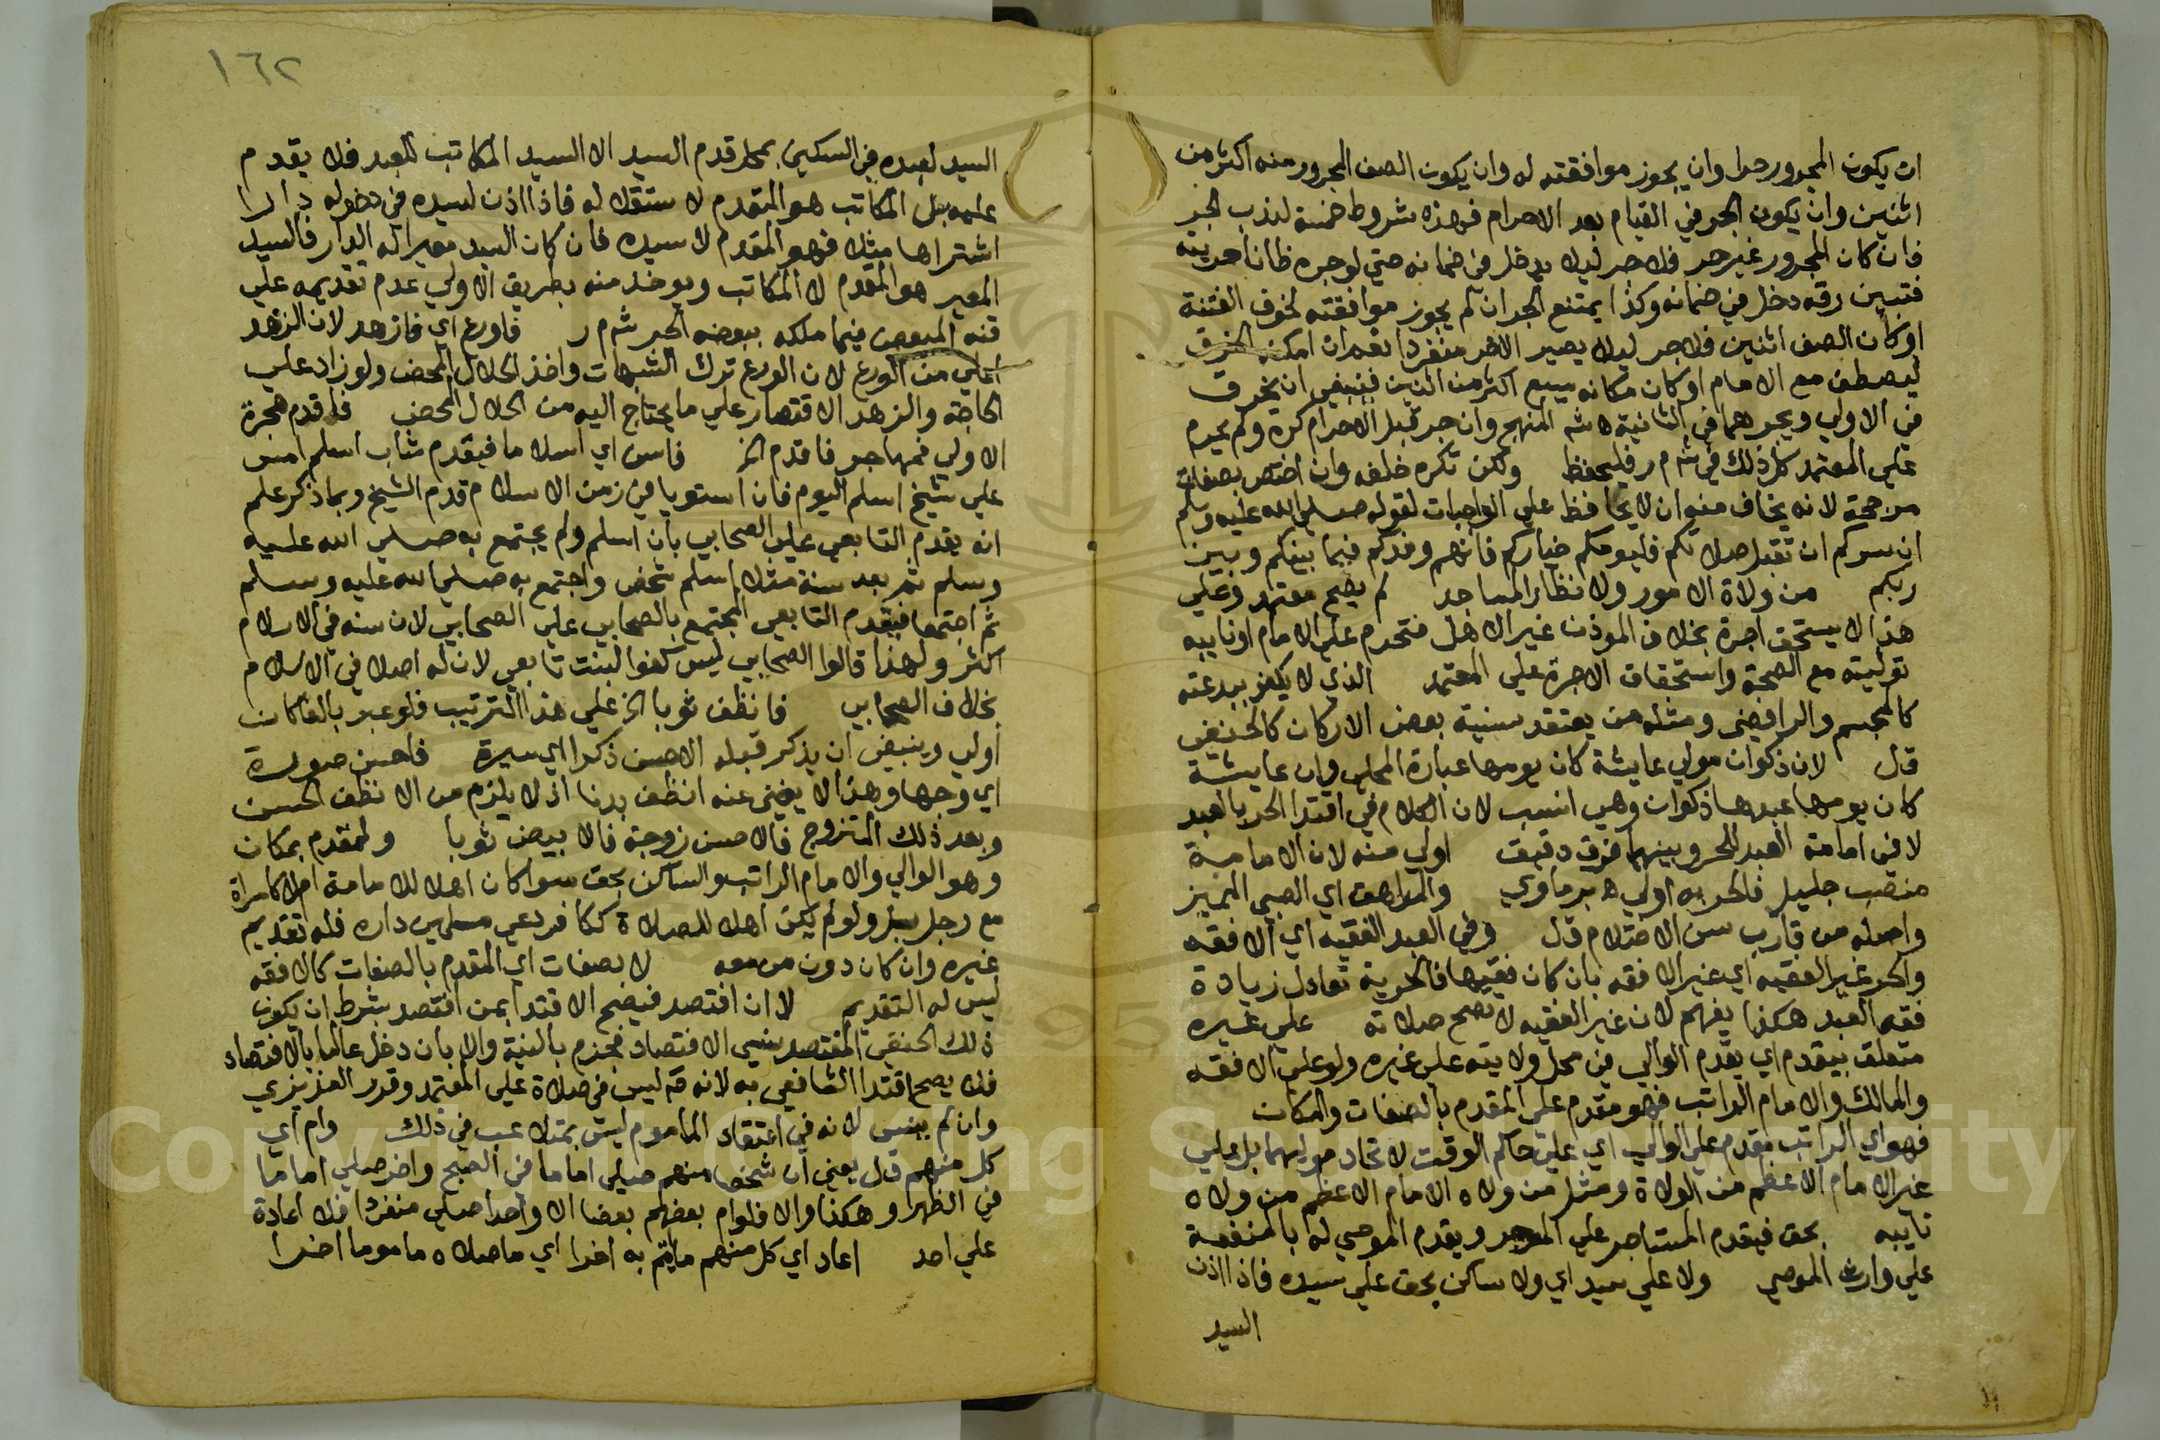 ان يكون المجرور حرا وان يجوز موافقته له وان يكون الصف المجرور منه اكثر من
اثنين وان يكون الجر في القيام بعد الاحرام فهذه شروط خمسة لندب الجر
فان كان المجرور غير حر فلا جر ليلا يدخل في ضمانه حتي لو جره ظانا حريته
فتبين رقه دخل في ضمانه وكذا يمتنع الجر ان لم يجوز موافقته لخوف الفتنة
او كان الصف اثنين فلا جر ليلا يصير الاخر منفردا نعم ان امكنه الخرق
ليصطف مع الامام او كان مكانه يسع اكثر من اثنين فينبغي ان يخرق
في الاولي ويجرهما في الثانية ه شم المنهج وان جر قبل الاحرام كره ولم يحرم
علي المعتمد كل ذلك في ش م ر فليحفظ ولكن تكره خلفه وان اختص بصفات
مرجحة لانه يخاف منه ان لا يحافظ علي الواجبات لقوله صلي الله عليه وسلم
ان سركم ان تقبل صلاتكم فليومكم خياركم فانهم وفدكم فيما بينكم وبين
ربكم من ولاة الامور ولا نظار المساجد لم يصح معتمد وعلي
هذا لا يستحق اجرة بخلاف الموذن غير الاهل فتحرم علي الامام او نايبه
توليته مع الصحة واستحقاق الاجرة علي المعتمد الذي لا يكفر ببدعته
كالمجسم والرافضي ومثله من يعتقد سنية بعض الاركان كالحنفي
قال لان ذكوان مولي عايشة كان يومها عبارة المحلي وان عايشة
كان يومها عبدها ذكوان وهي انسب لان الكلام في اقتدا الحر بالعبد
لا في امامة العبد للحر وبينهما فرق دقيق اولي منه لان الامامة
منصب جليل فالحر به اولي ه برماوي والمراهق اي الصبي المميز
واصله من قارب سن الاحتلام قال وفي العبد الفقيه اي الافقه
والحر غير الفقيه اي غير الافقه بان كان فقيها فالحرية تعادل زيادة
فقه العبد هكذا يفهم لان غير الفقيه لا تصح صلاته علي غيره
متعلق بيقدم اي يقدم الوالي في محل ولايته علي غيره ولو علي الافقه
والمالك والامام الراتب فهو مقدم علي المقدم بالصفات والمكان
فهو اي الراتب مقدم علي الوالي اي علي حاكم الوقت لاتحاد موليهما بل علي
غير الامام الاعظم من الولاة ومثل من ولاه الامام الاعظم من ولاه
نايبه بحق فيقدم المستاجر علي الموجر ويقدم الموصي له بالمنفعة
علي وارث الموصي ولا علي سيد اي ولا ساكن بحق علي سيده فاذا اذن
السيد
١٦٢
السيد لعبده في السكني بمحل قدم السيد الا السيد المكاتب للعبد فلا يقدم
عليه بل المكاتب هو المقدم لاستقلاله فاذا اذن لسيده في دخوله دارا
اشتراها مثلا فهو المقدم لا سيده فان كان السيد معيرا له الدار فالسيد
المعير هو المقدم لا المكاتب ويوخذ منه بطريق الاولي عدم تقديمه علي
قنه المبعض فيما ملكه ببعضه الحر ش م ر فاورع اي فازهد لان الزهد
اعلي من الورع لان الورع ترك الشبهات واخذ الحلال المحض ولو زاد علي
الحاجة والزهد الاقتصار علي ما يحتاج اليه من الحلال المحض فاقدم هجرة
الاولي فمهاجر فاقدم الخ فاسن اي اسلاما فيقدم شاب اسلم امس
علي شيخ اسلم اليوم فان استويا في زمن الاسلام قدم الشيخ وبما ذكر علم
انه يقدم التابعي علي الصحابي بان اسلم ولم يجتمع به صلي الله عليه
وسلم ثم بعد سنة مثلا اسلم شخص واجتمع به صلي الله عليه وسلم
ثم اجتمعا فيقدم التابعي المجتمع بالصحابي علي الصحابي لان سنه في الاسلام
اكثر ولهذا قالوا الصحابي ليس كفوا لبنت تابعي لان له اصلا في الاسلام
بخلاف الصحابي فانظف ثوبا الخ علي هذا الترتيب فلو عبر بالفا كان
اولي وينبغي ان يذكر قبله الاحسن ذكرا اي سيرة فاحسن صورة
اي وجها وهذا لا يغني عنه انظف بدنا اذ لا يلزم من الانظف الحسن
وبعد ذلك المتزوج فالاحسن زوجة فالابيض ثوبا ولمقدم بمكان
وهو الوالي والامام الراتب والساكن بحق سوا كان اهلا للامامة ام لا كامراة
مع رجل بل ولو لم يكن اهلا للصلاة ككافر دعي مسلمين داره فله تقديم
غيره وان كان دون من معه لا بصفات اي المقدم بالصفات كالافقه
ليس له التقديم لا ان افتصد فيصح الاقتدا بمن افتصد بشرط ان يكون
ذلك الحنفي المفتصد نسي الافتصاد فجزم بالنية والا بان دخل عالما بالافتصاد
فلا يصح اقتدا الشافعي به لانه ح ليس في صلاة علي المعتمد وقرر العزيزي
وان لم ينس لانه في اعتقاد الماموم ليس بمتلاعب في ذلك وام اي
كل منهم قال يعني ان شخصا منهم صلي اماما في الصبح واخر صلي اماما
في الظهر وهكذا والا فلو ام بعضهم بعضا الا واحدا صلي منفردا فلا اعادة
علي احد اعاد اي كل منهم ما يتم به اخرا اي ما صلاه ماموما اخرا